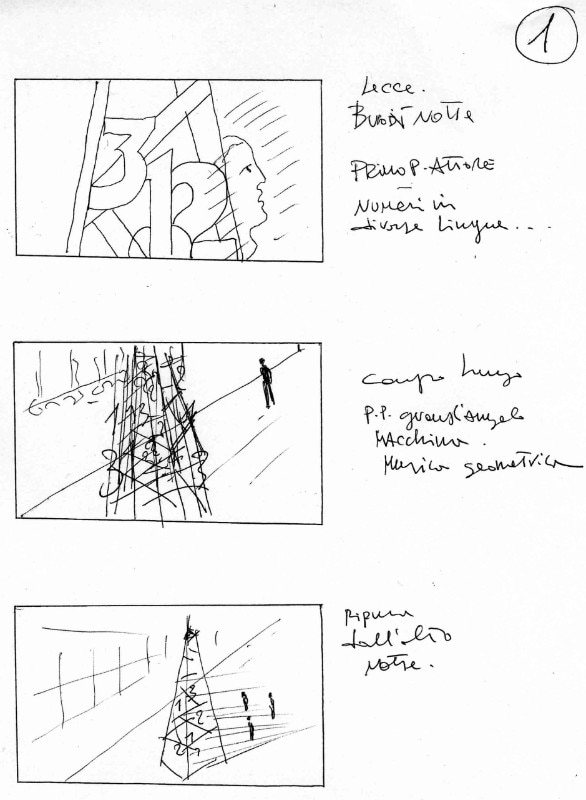 1
Lecce.
Notte
3
12
Primo P. Attore
Numeri in
diverse lingue...
campo lungo
P.P. grand'angolo
Macchina.
Musica geometrica
Ripresa
dall'alto
notte.